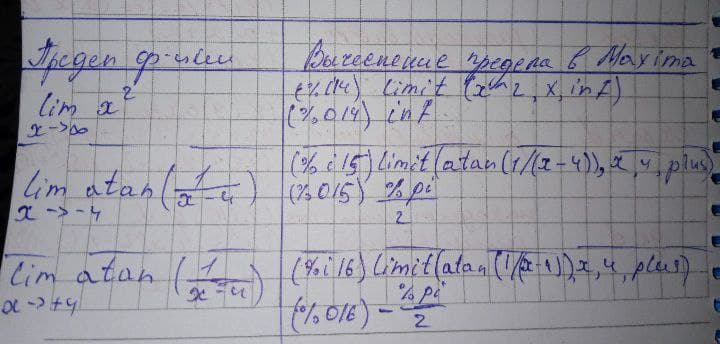 Предел ф-ции
Вычисление предела в Maxima
lim x²
x->∞
(%i14) limit (x^2, x, inf)
(%o14) inf
lim atan (1/(x-4))
x->-4
(%i15) limit(atan(1/(x-4)), x, 4, plus)
(%o15) %pi/2
lim atan (1/(x-4))
x->+4
(%i16) limit(atan(1/(x-4)),x,4,plus)
(%o16) - %pi/2